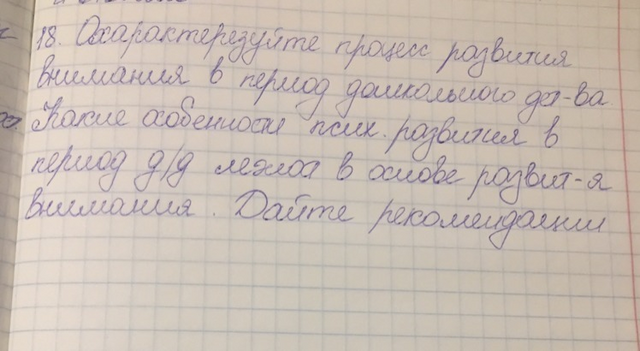 18. Охарактерезуйте процесс развития
внимания в период дошкольного дет-ва
Какие особенности псих. развития в
период д/д лежат в основе развит-я
внимания. Дайте рекомендации